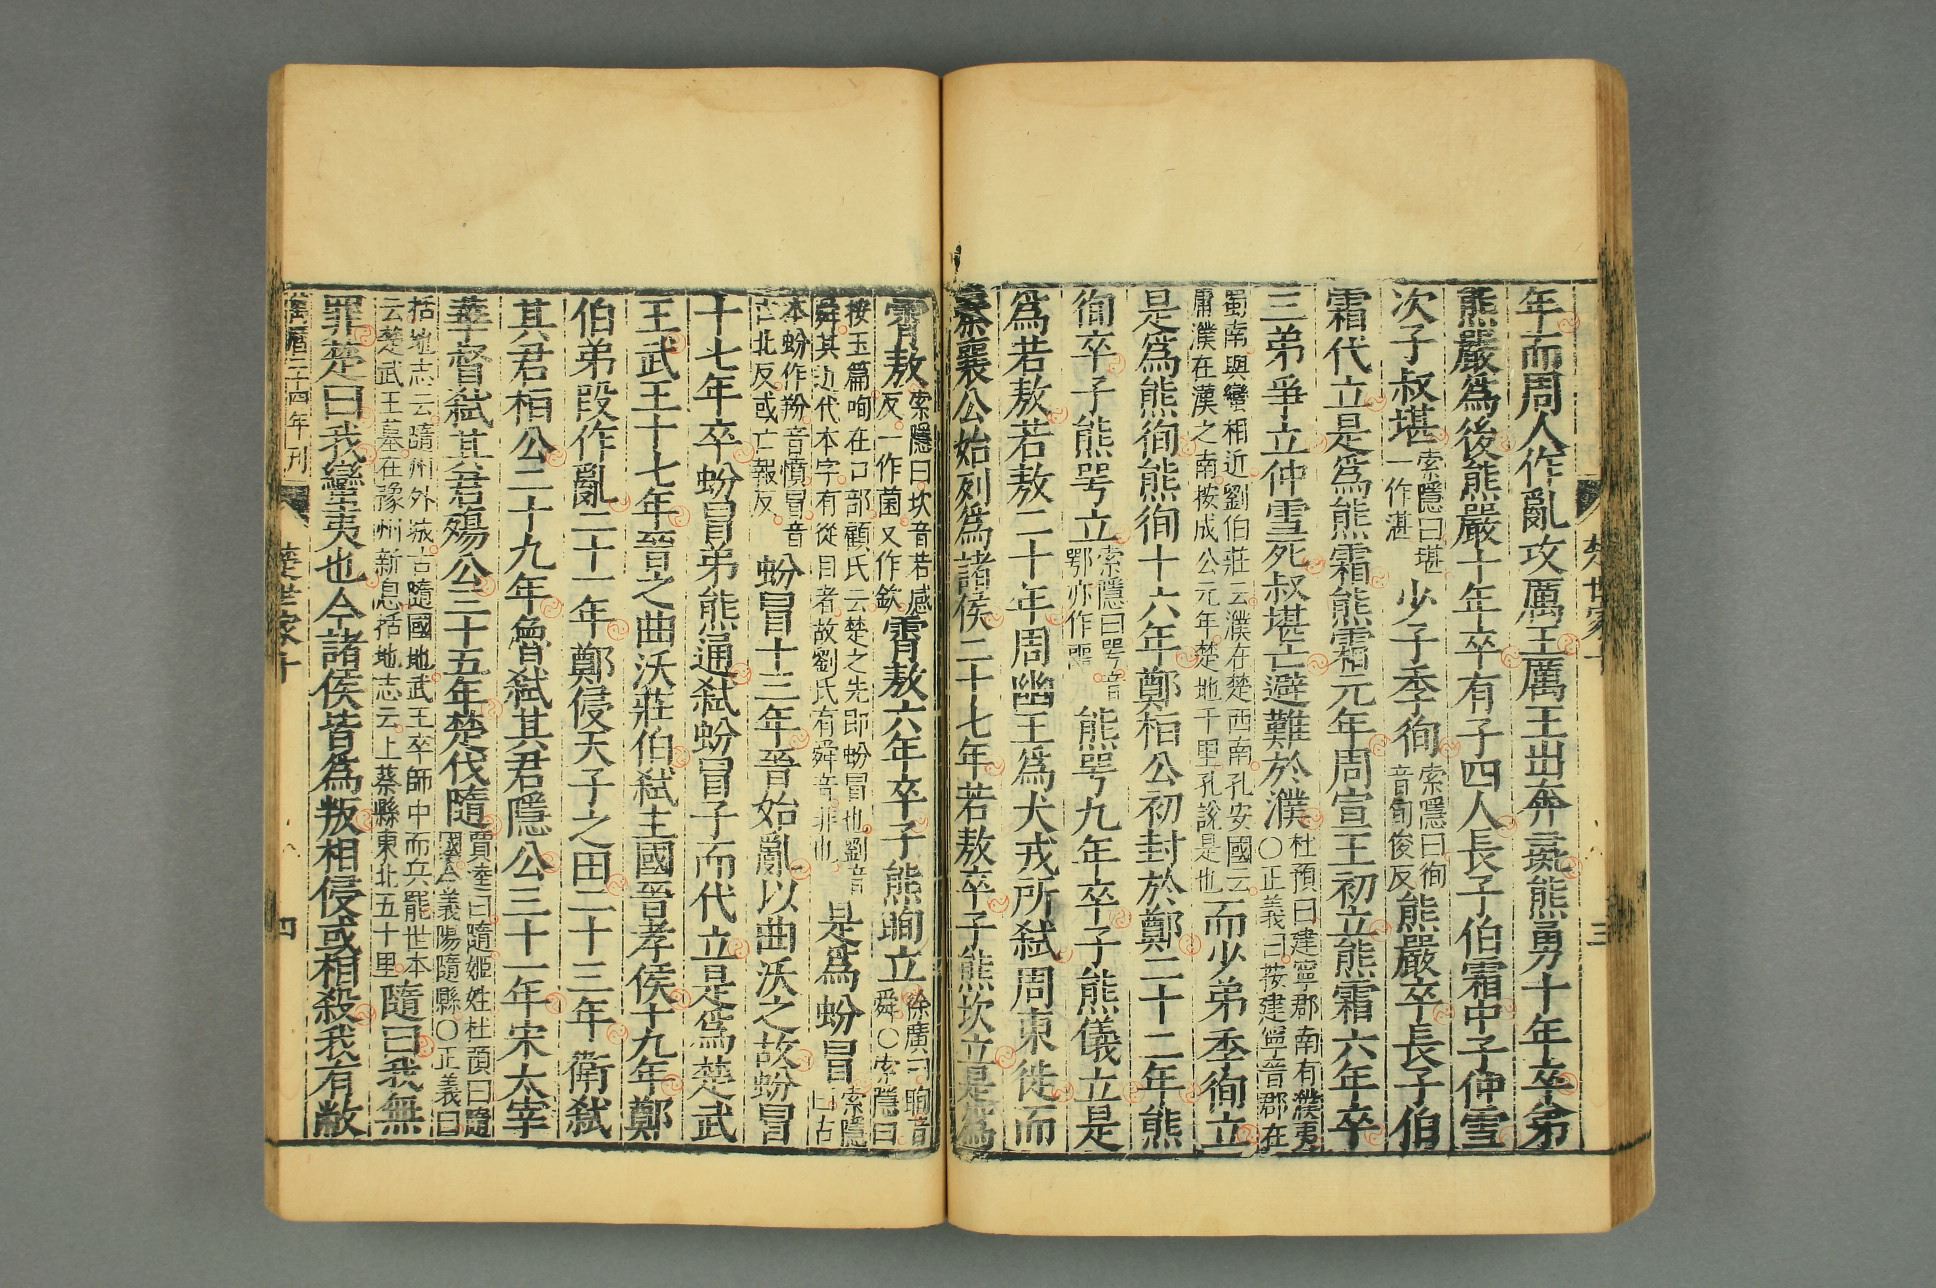 楚世家十 三
年而周人作亂攻厲王厲王出奔彘熊勇十年卒弟
熊嚴爲後熊嚴十年卒有子四人長子伯霜中子仲雪
次子叔堪索隱曰堪一作湛少子季徇索隱曰徇音旬俊反熊嚴卒長子伯
霜代立是爲熊霜熊霜元年周宣王初立熊霜六年卒
三弟爭立仲雪死叔堪亡避難於濮杜預曰建寧郡南有濮夷○正義曰按建寧音郡在
蜀南與蠻相近劉伯莊云濮在楚西南孔安國云庸濮在漢之南按成公元年楚地千里孔說是也而少弟季徇立
是爲熊徇熊徇十六年鄭桓公初封於鄭二十二年熊
徇卒子熊咢立索隱曰咢音鄂亦作噩熊咢九年卒子熊儀立是
爲若敖若敖二十年周幽王爲犬戎所弒周東徙而
秦襄公始列爲諸侯二十七年若敖卒子熊坎立是爲
霄敖索隱曰坎音苦感反一作菌又作欽霄敖六年卒子熊眴立徐廣曰眴音舜○索隱曰
按玉篇眴在口部顧氏云楚之先即蚡冒也劉音舜其近代本字有從目者故劉氏有舜音非也是爲蚡冒索隱曰古
本蚡作羒音憤冒音亡北反或亡報反蚡冒十三年晉始亂以曲沃之故蚡冒
十七年卒蚡冒弟熊通弒蚡冒子而代立是爲楚武
王武王十七年晉之曲沃莊伯弒主國晉孝侯十九年鄭
伯弟段作亂二十一年鄭侵天子之田二十三年衛弒
其君桓公二十九年魯弒其君隱公三十一年宋太宰
華督弒其君殤公三十五年楚伐隨賈逵曰隨姬姓杜預曰隨國今義陽隨縣○正義曰
括地志云隨州外城古隨國地武王卒師中而兵罷世本云楚武王墓在豫州新息括地志云上蔡縣東北五十里隨曰我無
罪楚曰我蠻夷也今諸侯皆爲叛相侵或相殺我有敝
萬曆二十四年刊 楚世家十 四